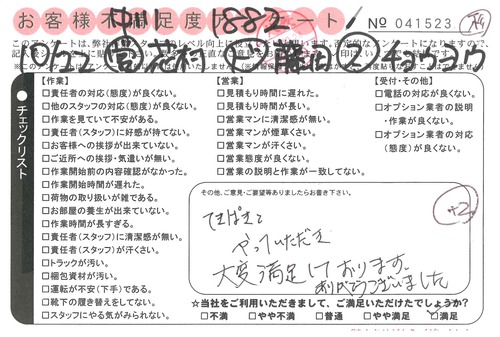 お客様不満足度アンケート
No 041523
チェックリスト
【作業】
□責任者の対応(態度)が良くない。
□他のスタッフの対応(態度)が良くない。
□作業を見ていて不安がある。
□責任者(スタッフ)に好感が持てない。
□お客様への挨拶が出来ていない。
□ご近所への挨拶・気遣いが無い。
□作業開始前の内容確認がなかった。
□作業開始時間が遅れた。
□荷物の取り扱いが雑である。
□お部屋の養生が出来ていない。
□作業時間が長すぎる。
□責任者(スタッフ)に清潔感が無い。
□責任者(スタッフ)が汗くさい。
□トラックが汚い。
□梱包資材が汚い。
□運転が不安(下手)である。
□靴下の履き替えをしてない。
□スタッフにやる気がみられない。
【営業】
□見積もり時間に遅れた。
□見積もり時間が長い。
□営業マンに清潔感が無い。
□営業マンが煙草くさい。
□営業マンが汗くさい。
□営業態度が良くない。
□営業の説明と作業が一致してない。
【受付・その他】
□電話の対応が良くない。
□オプション業者の説明
・作業が良くない。
□オプション業者の対応
(態度)が良くない。
その他、ご意見・ご要望等ありましたらお書き下さい。
てきぱきと
やっていただき
大変満足しております。
ありがとうございました
+2
☆当社をご利用いただきまして、ご満足いただけたでしょうか?
□不満 □やや不満 □普通 □やや満足 □満足